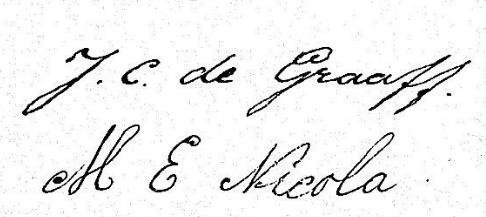 J. C. de Graaff.
M E Nicola.